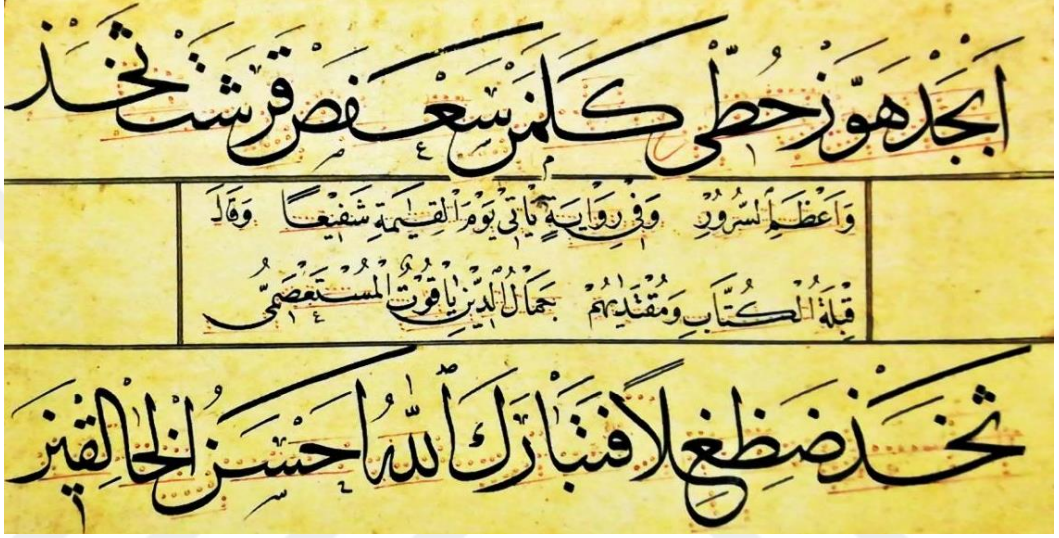 ابجد هوز حطي كلمن سعفص قرشت ثخذ
وَاَعْظَمِ السُّرُورِ وَفِي رِوَايَةٍ يَأْتِي يَوْمَ الْقِيٰمَةِ شَفِيْعًا وَقَالَ
قِبْلَةُ الْكُتَّابِ وَمُقْتَدٰيهُمْ جَمَالُ الدِّينِ يَاقُوتُ الْمُسْتَعْصِمِيُّ
ثخذ ضظغلا فَتَبَارَكَ اللّٰهُ اَحْسَنُ الْخَالِقِينَ